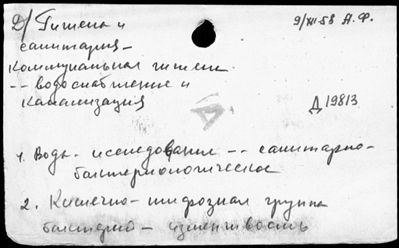 2/ Гигиена и
9/XII 58 А.Ф.
санитария –
коммунальная гигиен.
-- водоснабжение и
канализация
Д 19813
1. Вода – исследование -- санитарно-
бактериологическое
2. Кишечно-тифозная группа
бактерий – изменчивость